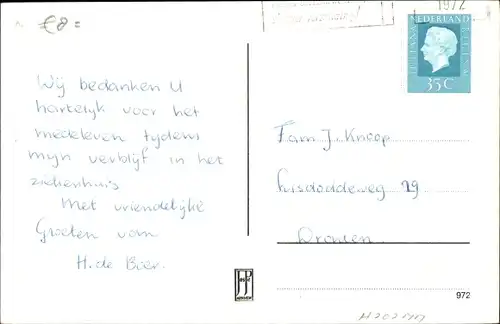 €8=
1972
NEDERLAND
JULIANA REGINA
35 C
Wij bedanken U
hartelijk voor het
medeleven tijdens
mijn verblijf in het
ziekenhuis
Met vriendelijke
Groeten van
H. de Boer.
Fam J. Knoop
29
Dronten
972